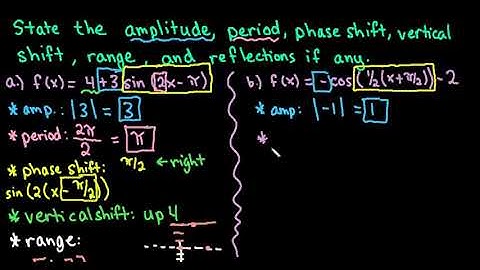 State the amplitude, period, phase shift, vertical
shift, range, and reflections if any.
a.) f(x) = 4+3 sin(2x-π)
* amp.: |3| = 3
* period: 2π/2 = π
* phase shift: π/2 ← right
sin(2(x-π/2))
* vertical shift: up 4
* range:
b.) f(x) = -cos(1/2(x+π/2))-2
* amp: |-1| = 1
*